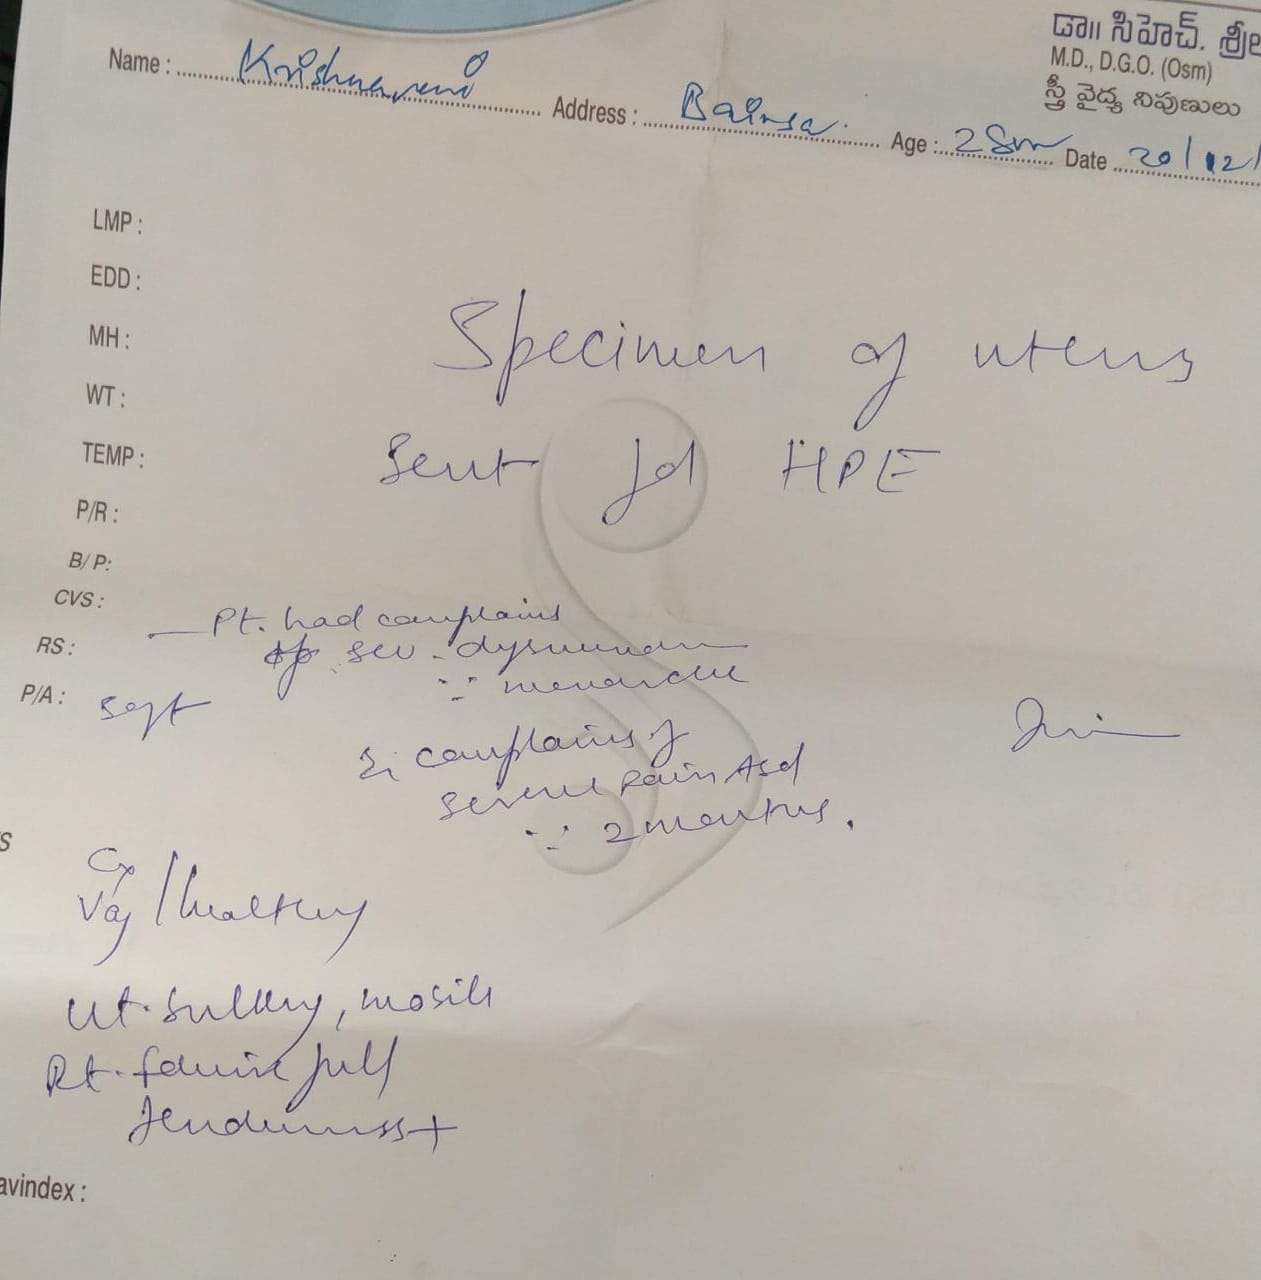 డా॥ సిహెచ్. శ్రీల
M.D., D.G.O. (Osm)
స్త్రీ వైద్య నిపుణులు
Name : Krishnaveni Address : Bainsa. Age : 28 Date 20/12/
LMP :
EDD :
MH :
WT :
TEMP :
P/R :
B/P:
CVS :
RS :
P/A : soft
Specimen of uterus
sent for HPE
Pt. had complains
of sev. dysmenorr
∵ menarche
complains of
severe pain Abd
∵ 2 months.
S
Cx
Vag / healthy
Ut. bulky, mobile
Rt. fornix full
tenderness +
avindex :